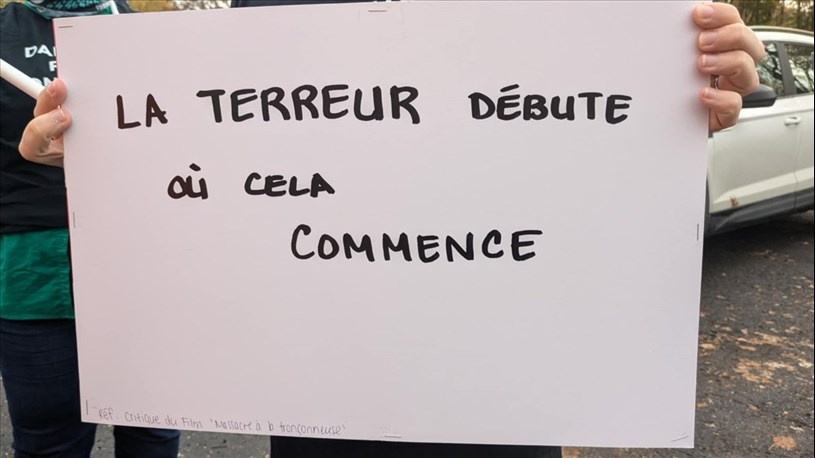 LA TERREUR DÉBUTE
OÙ CELA
COMMENCE
REF. Critique du Film "Massacre à la tronçonneuse"